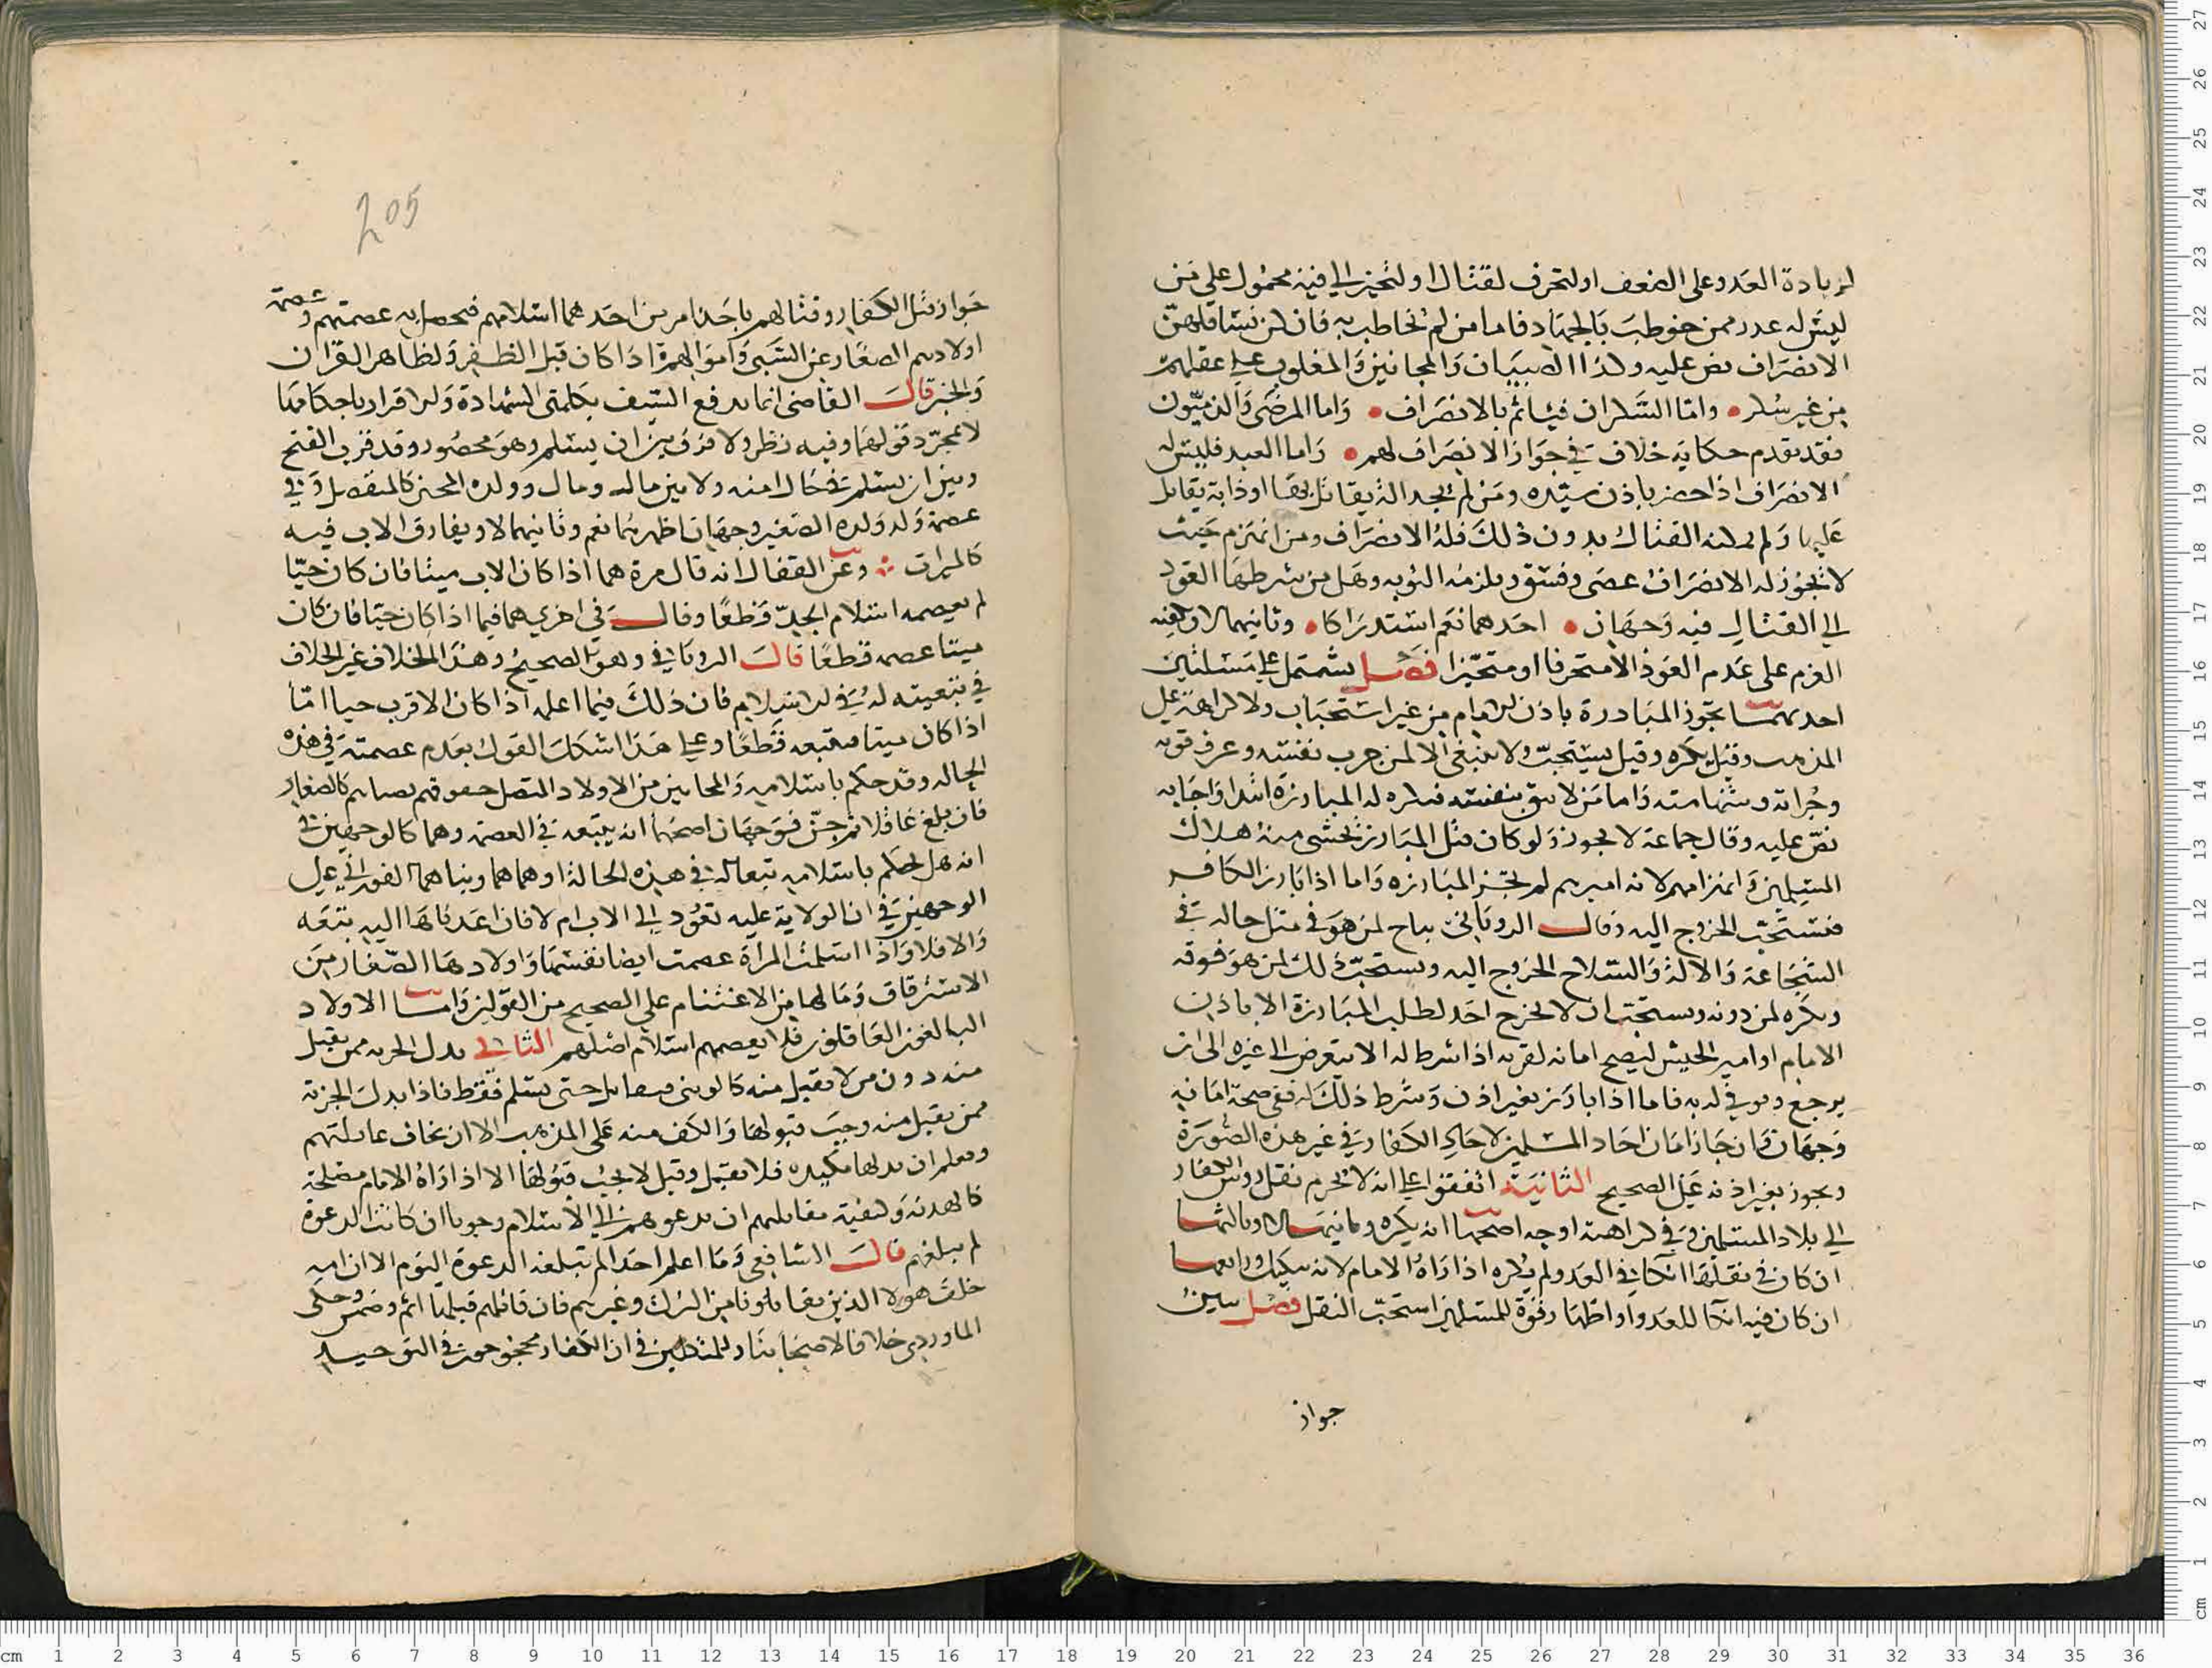 لزيادة العدو على الضعف او لتحرف لقتال او لتحيز الى فية محمول على من
ليس له عذر ممن خوطب بالجهاد فاما من لم يخاطب به فان كن نسا فلهن
الانصراف نص عليه وكذا الصبيان والمجانين والمغلوب على عقلهم
من غير سكر • واما السكران فياثم بالانصراف • واما المرضى والذميون
فقد تقدم حكاية خلاف في جواز الانصراف لهم • واما العبد فليس له
الانصراف اذا حضر باذن سيده ومن لم يجد الة يقاتل بها او دابة يقاتل
عليها ولم يمكنه القتال بدون ذلك فله الانصراف ومن انهزم حيث
لا يجوز له الانصراف عصى وفسق ويلزمه التوبه وهل من شرطها العود
الى القتال فيه وجهان • احدهما نعم استدراكا • وثانيهما لا ويكفيه
العزم على عدم العود الا متحرفا او متحيزا فصل يشتمل على مسئلتين
احديهما تجوز المبادرة باذن الامام من غير استحباب ولا كراهة على
المذهب وقيل يكره وقيل يستحب ولا ينبغي الا لمن جرب نفسه وعرف قوته
وجراته وشهامته واما من لا يثق بنفسه فيكره له المبارزة ابتدا واجابه
نص عليه وقال جماعة لا يجوز ولو كان قتل المبارز يخشى منه هلاك
المسلمين وانهزامهم لانه اميرهم لم تجز المبارزه واما اذا بارز الكافر
فيستحب الخروج اليه وقال الروياني يباح لمن هو في مثل حاله في
الشجاعة والالة والسلاح الخروج اليه ويستحب ذلك لمن هو فوقه
ويكره لمن دونه ويستحب ان لا يخرج احد لطلب المبارزة الا باذن
الامام او امير الجيش ليصح امانه لقرنه اذا شرط له الا يتعرض الى غيره الى ان
يرجع ويوفي له به فاما اذا بارز بغير اذن وشرط ذلك له ففي صحة امانه
وجهان وان جاز امان احاد المسلمين لاحاد الكفار في غير هذه الصورة
ويجوز بغير اذنه على الصحيح الثانية اتفقوا على انه لا يحرم نقل روس الكفار
الى بلاد المسلمين وفي كراهته اوجه اصحها انه يكره وثانيها لا وثالثها
ان كان في نقلها انكا في العدو لم يكره اذا راه الامام لانه تنكيل ورابعها
ان كان فيه انكا للعدو او اظهار قوة للمسلمين استحب النقل فصل يباين
جواز
205
جواز قتل الكفار وقتالهم باحد امرين احدهما اسلامهم فيحصل به عصمتهم وعصمة
اولادهم الصغار عن السبي واموالهم اذا كان قبل الظفر ولظاهر القران
والخبر قال القاضي انما يدفع السيف بكلمتي الشهادة والاقرار باحكامها
لا بمجرد قولها وفيه نظر ولا فرق بين ان يسلم وهو محصور وقد قرب الفتح
وبين ان يسلم في حال امنه ولا بين ماله ومال وولده المجنن كالمنفصل وفي
عصمة ولد ولده الصغير وجهان اظهرهما نعم وثانيهما لا ويفارق الاب فيه
كالميراث وعن القفال انه قال مرة هما اذا كان الاب ميتا فان كان حيا
لم يعصمه اسلام الجد قطعا وقال في اخري هما فيما اذا كان حيا فان كان
ميتا عصمه قطعا قال الروياني وهو الصحيح وهذا الخلاف غير الخلاف
في تبعيته له في الاسلام فان ذلك فيما اعلمه اذا كان الاقرب حيا اما
اذا كان ميتا فيتبعه قطعا وعلى هذا اشكل القول بعدم عصمته في هذه
الحاله وقد حكم باسلامه والمجانين من الاولاد المتصل جنونهم بصباهم كالصغار
فان بلغ عاقلا ثم جن فوجهان اصحهما انه يتبعه في العصمة وهما كالوجهين في
انه هل يحكم باسلامه تبعا له في هذه الحالة او هما هما وبناهما الفوراني على
الوجهين في ان الولاية عليه تعود الى الاب ام لا فان اعدناها اليه يتبعه
والا فلا واذا اسلمت المراة عصمت ايضا نفسها واولادها الصغار من
الاسترقاق ومالها من الاغتنام على الصحيح من القولين واما الاولاد
البالغون العاقلون فلا يعصمهم اسلام اصلهم الثاني بذل الجزيه ممن يقبل
منه دون من لا تقبل منه كالوثني فيقاتل حتى يسلم فقط فاذا بذل الجزية
ممن يقبل منه وجب قبولها والكف عنه على المذهب الا ان يخاف غايلتهم
ويعلم ان بذلها مكيدة فلا يقبل وقيل لا يجب قبولها الا اذا راه الامام مصلحة
كالهدنة وكيفية مقاتلتهم ان يدعوهم الى الاسلام وجوبا ان كانت الدعوة
لم تبلغهم قال الشافعي وما اعلم احدا لم تبلغه الدعوة اليوم الا ان امه
خلف هولا الذين يقاتلونا من الترك وغيرهم فان قاتلهم قبلها اثم وضمن وحكى
الماوردي خلافا لاصحابنا وللمتكلمين في ان الكفار محجوجون في التوحيد